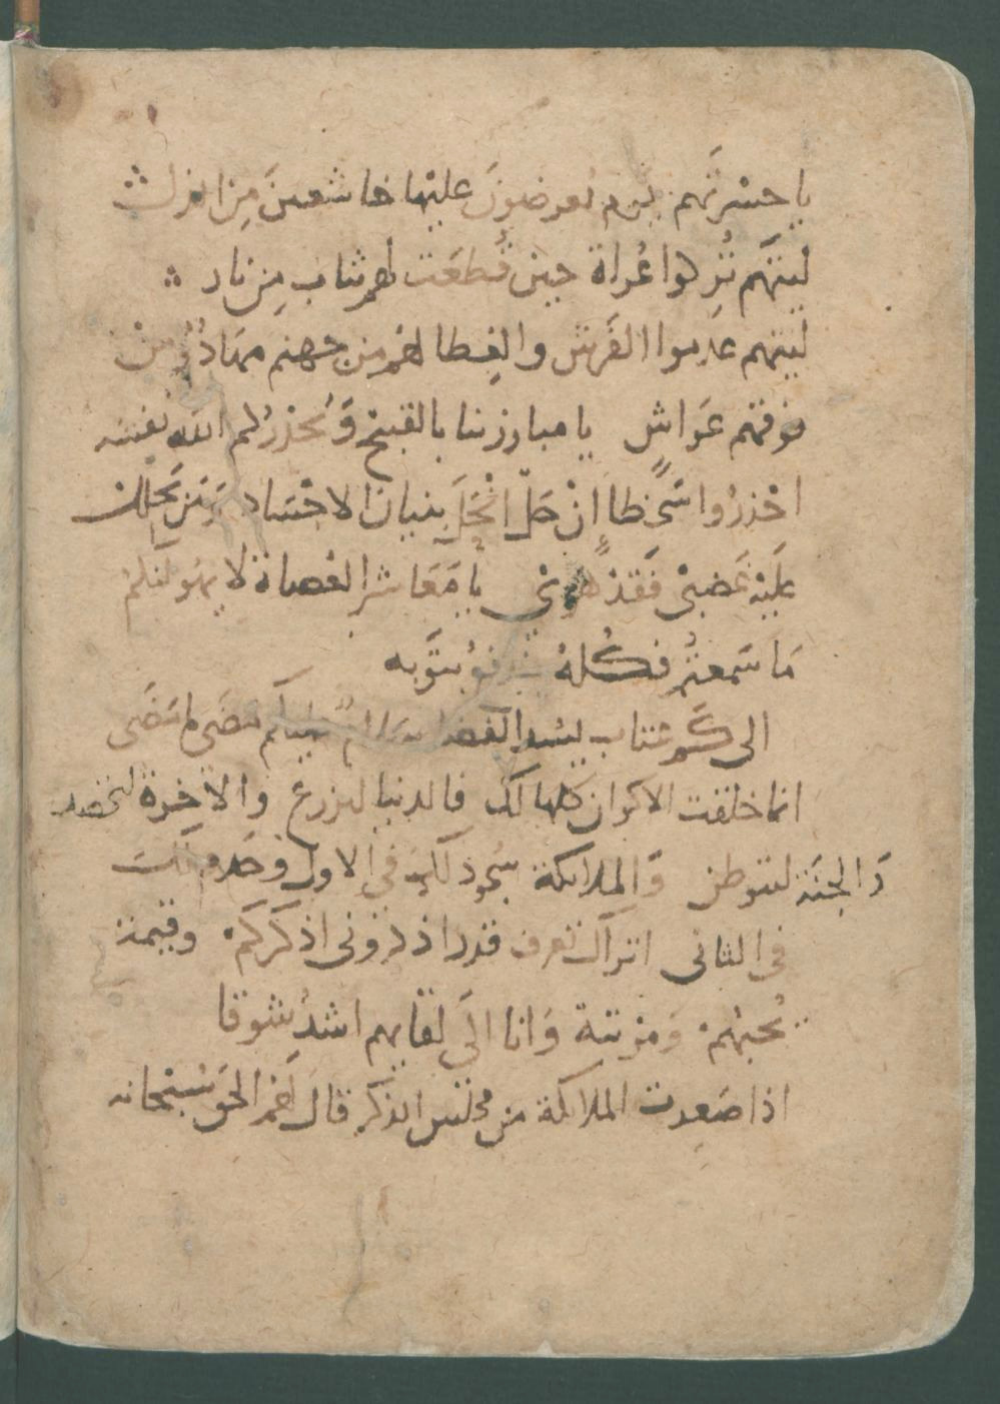 يا حسرتهم يوم يعرضون عليها خاشعين من الذل
ليتهم تركوا عراة حين قطعت لهم ثياب من نار
ليتهم عدموا الفرش والغطا لهم من جهنم مهاد ومن
فوقهم غواش يا مبارزينا بالقبيح وَيُحَذِّرُكُم الله نفسه
احْذَرُوا سَخطا إنْ حَلّ انْحَلَّ بنيان الاجْسَاد وَمَنْ يَحلِلْ
عَلَيْهِ غَضبِىْ فَقَدْ هوى يا مَعَاشر العُصاة لا يهولنكم
مَا سَمعتُمْ فكُلهُ بتوبه
الى كَم عتاب عليكم مضَى ما مَضَى
انما خلقت الاكوان كلها لك فالدنيا لتزرع والآخرة لتحصد
وَالجنَة لتتوطن وَالملائكة سجود لك فى الاول وخدم لك
فى الثانى اتراك تعرف قدر اذكرونى اذكركم وقيمة
يُحبهُم ومزيتة وَانا الَى لقايهم اشدُ شوقا
اذا صَعِدت الملائكة من مجلس الذكر قالَ لَهُم الحق سُبْحانه